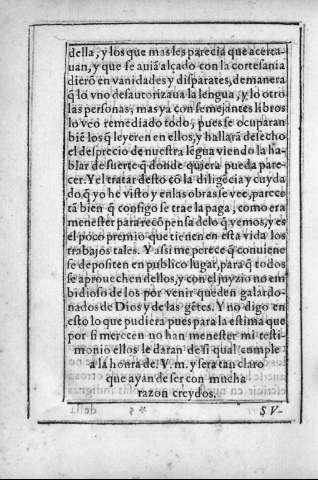 della, y los que mas les parecia que acerta-
uan, y que se auiā alçado con la cortesania
dierō en vanidades y disparates, de manera
q̄ lo vno desautorizaua la lengua, y lo otro
las personas, mas ya con semejantes libros
lo veo remediado todo, pues se ocuparan
biē los q̄ leyeren en ellos, y hallarā desecho
el desprecio de nuestra lēgua viendo la ha-
blar de suerte q̄ donde quiera pueda pare-
cer. Y el tratar desto cō la diligēcia y cuyda
do, q̄ yo he visto y en las obras se vee, parece
tā bien q̄ consigo se trae la paga, como era
menester para recōpensa de lo q̄ vemos, y es
el poco premio que tienen en esta vida los
trabajos tales. Y assi me perece q̄ conuiene
se depositen en publico lugar, para q̄ todos
se aprouechen dellos, y con el juyzio no em
bidioso de los por venir queden galardo-
nados de Dios y de las gētes. Y no digo en
esto lo que pudiera pues para la estima que
por si merecen no han menester mi testi-
monio ellos le daran de si qual cumple
a la honra de. V. m. y sera tan claro
que ayan de ser con mucha
razon creydos.
SV-